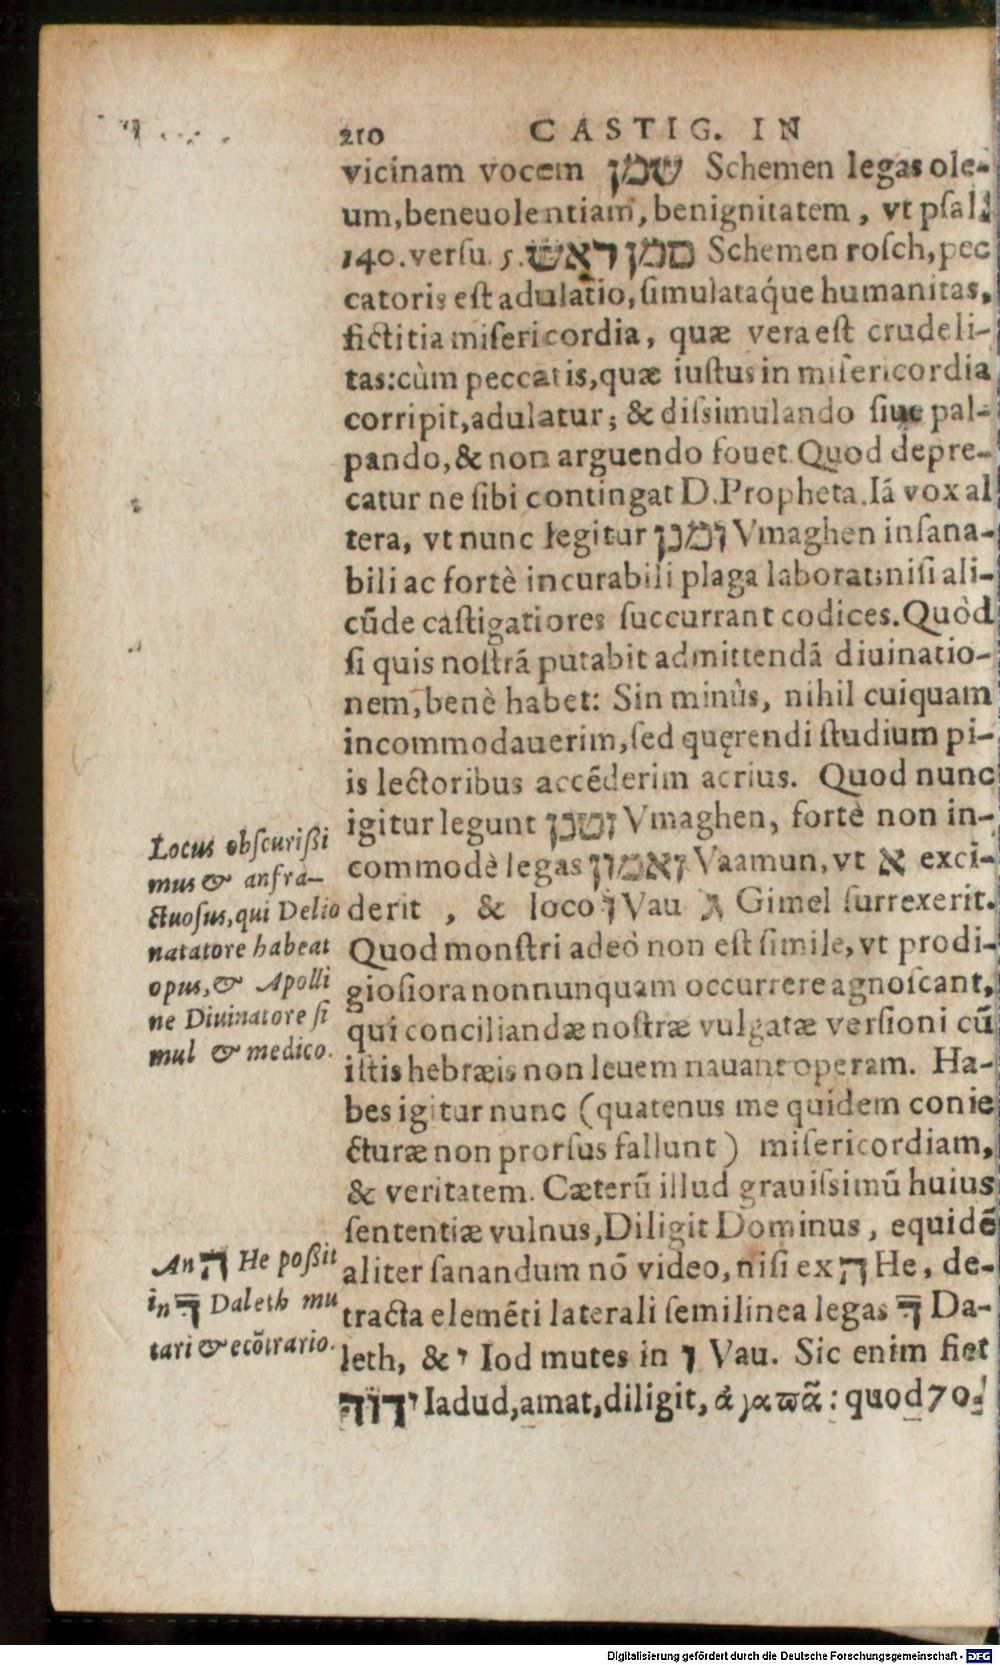 210 CASTIG. IN
vicinam vocem שמן Schemen legas ole-
um, beneuolentiam, benignitatem, vt psal.
140. versu. 5. סמן ראש Schemen rosch, pec
catoris est adulatio, simulatáque humanitas,
fictitia misericordia, quæ vera est crudeli-
tas: cùm peccatis, quæ iustus in misericordia
corripit, adulatur; & dissimulando siue pal-
pando, & non arguendo fouet. Quod depre-
catur ne sibi contingat D. Propheta. Iã vox al
tera, vt nunc legitur ומכן Vmaghen insana-
bili ac fortè incurabili plaga laborat; nisi ali-
cũde castigatiores succurrant codices. Quòd
si quis nostrã putabit admittendã diuinatio-
nem, benè habet: Sin minùs, nihil cuiquam
incommodauerim, sed quęrendi studium pi-
is lectoribus accẽderim acrius. Quod nunc
igitur legunt ומכן Vmaghen, fortè non in-
commodè legas ואמון Vaamun, vt א exci-
derit, & loco ו Vau ג Gimel surrexerit.
Quod monstri adeò non est simile, vt prodi-
giosiora nonnunquam occurrere agnoscant,
qui conciliandæ nostræ vulgatæ versioni cũ
istis hebræis non leuem nauant operam. Ha-
bes igitur nunc (quatenus me quidem conie
cturæ non prorsus fallunt) misericordiam,
& veritatem. Cæterũ illud grauissimũ huius
sententiæ vulnus, Diligit Dominus, equidẽ
aliter sanandum nõ video, nisi ex ה He, de-
tracta elemẽti laterali semilinea legas ד Da-
leth, & י Iod mutes in ו Vau. Sic enim fiet
ידוד Iadud, amat, diligit, ἀγαπᾶ: quod 70.
Locus obscurißi
mus & anfra-
ctuosus, qui Delio
natatore habeat
opus, & Apolli
ne Diuinatore si
mul & medico.
An ה He poßit
in ד Daleth mu
tari & ecõtrario.
Digitalisierung gefördert durch die Deutsche Forschungsgemeinschaft - DFG